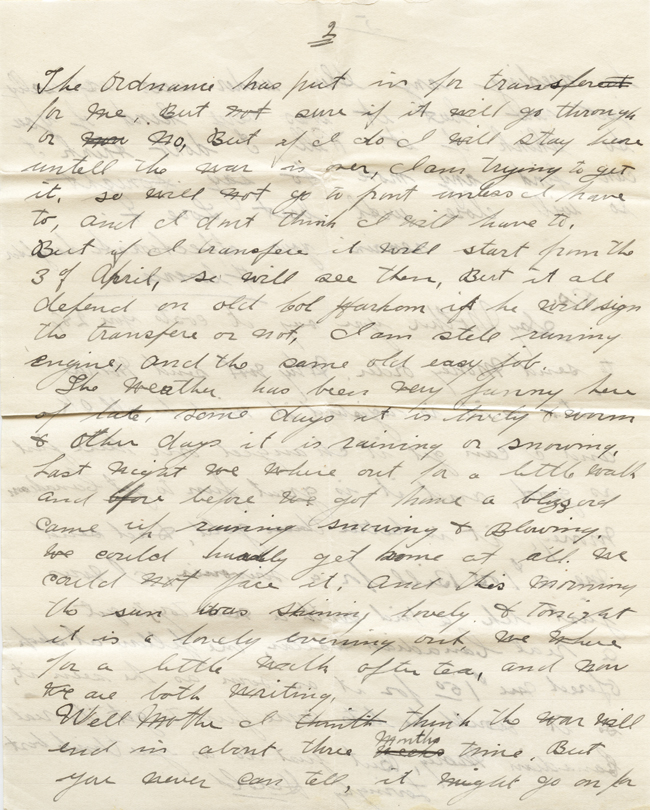 2
The Ordnance has put in for transferet
for me,. But not sure if it will go through
or now No, But if I do I will stay here
untell the war is over, I am trying to get
it. so will not go to front unless I have
to, and I dont think I will have to.
But if I transfere it will start from the
3 of April, so will see then, But it all
defend on old Col Harkom if he will sign
the transfere or not, I am stell running
engine, and the same old easy job.
The Weather has been very funny here
of late, some days it is lovely & worm
& other days it is raining or snowing,
Last Night we where out for a little walk
and before we got home a blizzard
came up raining snowing & Blowing.
We could hardly get home at all. We
could not face it. And this Morning
the sun was shining lovely & tonight
it is a lovely evening out we where
for a little walk after tea, and now
We are both writing.
Well Mothe I think think the war will
end in about three weeks Months time. But
you never can tell, it might go on, for